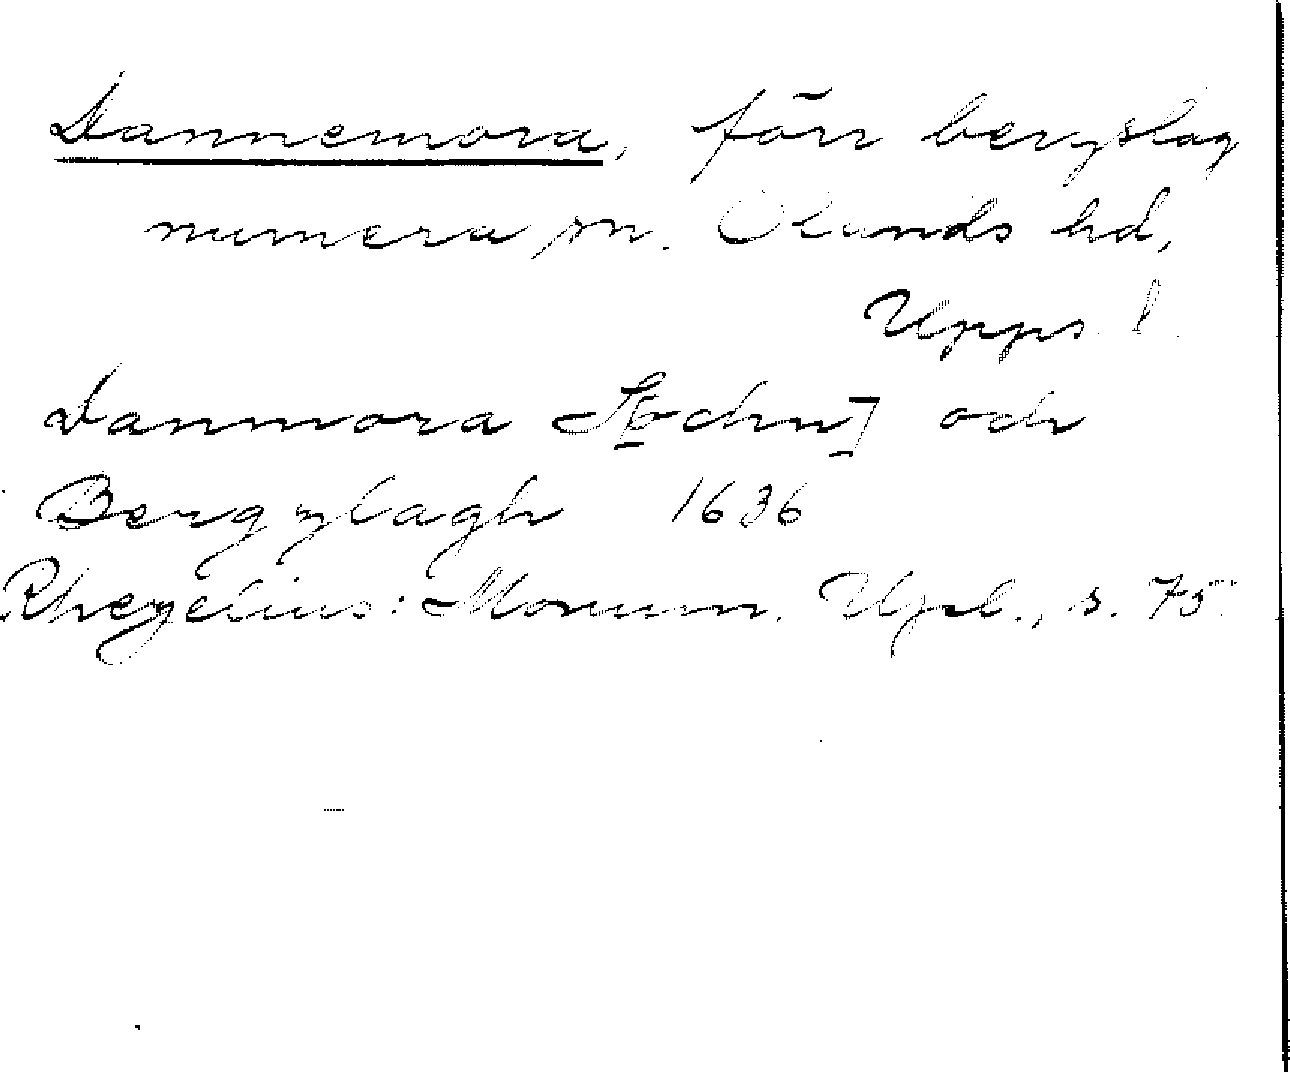 Dannemora, förr bergslag
numera sn. Olands hd,
Upps. l.
Danmora S[ochn] och
Bergzlagh 1636
Rhezelius: Monum. Upl., s. 75.